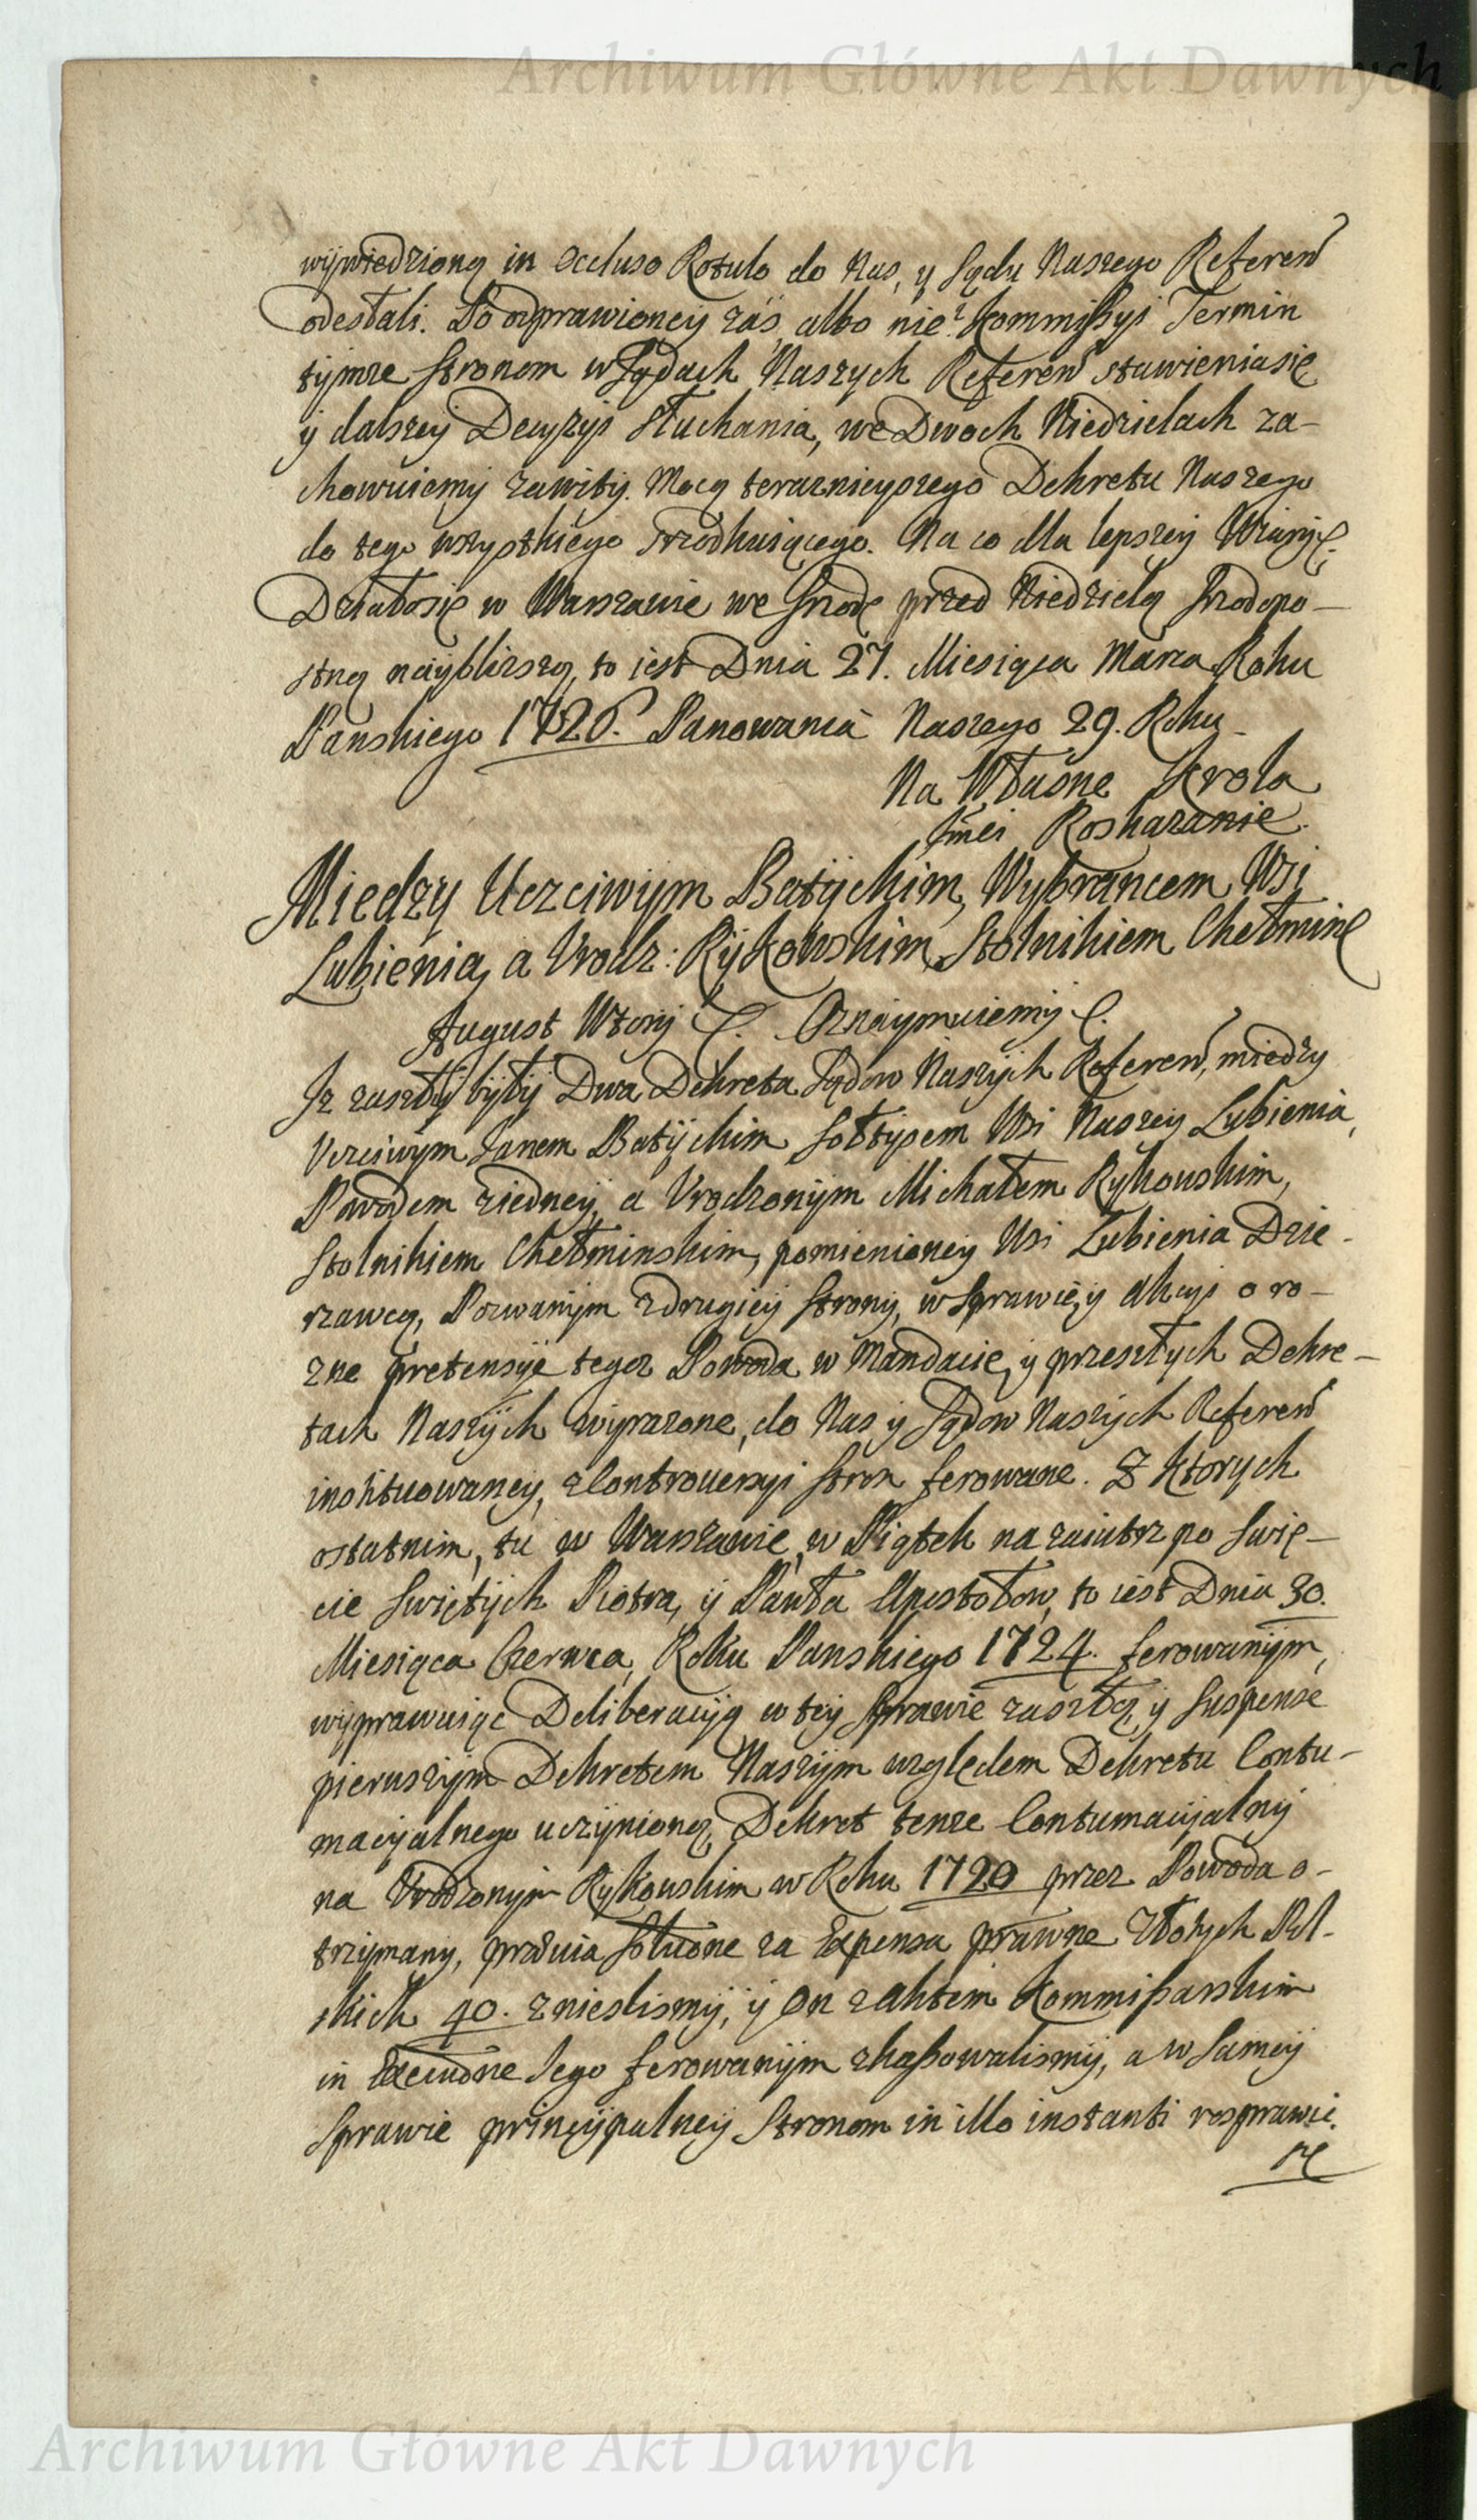 Archiwum Główne Akt Dawnych
wywiedzioną in occluso Rotulo do Nas, y Sądu Naszego Referen
odesłali. Po odprawioney zaś, albo nie? Kommissyi Termin
tymze Stronom w Sądach Naszych Referen stawienia się
y dalszey Decyzyi słuchania, we Dwoch Niedzielach za-
chowuiemy zawity. Mocą teraznieyszego Dekretu Naszego
do tego wszystkiego srzodkuiącego. Na co dla lepszey Wiary &.
Działo się w Warszawie we Srzodę przed Niedzielą Srzodopo-
stną naybliszą, to iest Dnia 27. Miesiąca Marca Roku
Panskiego 1726. Panowania Naszego 29. Roku
Na Własne Krola
Jmci Roskazanie.
Miedzy Uczciwym Batyckim, Wybrancem Wsi
Lubienia, a Urodz: Rykowskim, Stolnikiem Chełmin
August Wtory &. Oznaymuiemy &.
Iz zaszły były Dwa Dekreta Sądow Naszych Referen, miedzy
Uczciwym Janem Batyckim Sołtysem Wsi Naszey Lubienia,
Powodem ziedney, a Urodzonym Michałem Rykowskim,
Stolnikiem Chełminskim, pomienioney Wsi Lubienia Dzie-
rzawcą, Pozwanym zdrugiey strony, w Sprawie, y Akcyi o ro-
zne pretensye tegoz Powoda w Mandacie, y przeszłych Dekre-
tach Naszych wyrazone, do Nas y Sądow Naszych Referen
instituowaney, z Controuersyi stron ferowane. Z ktorych
ostatnim, tu w Warszawie, w Piątek nazaiutrz po Swię-
cie Swiętych Piotra, y Pawła Apostołow, to iest Dnia 30.
Miesiąca Czerwca, Roku Panskiego 1724. ferowanym,
wyprawuiąc Deliberacyą w tey Sprawie zaszłą, y suspense
pierwszym Dekretem Naszym względem Dekretu Contu-
macyalnego uczynioną, Dekret tenze Contumacyalny
na Urodzonym Rykowskim w Roku 1720 przez Powoda o-
trzymany, praevia solutione za Expensa prawne Złotych Pol-
skich 40. znieslismy, y on z Aktem Kommissarskim
in Executione Jego ferowanym skassowalismy, a w samey
Sprawie pryncypalney Stronom in illo instanti rosprawic.
się
Archiwum Główne Akt Dawnych